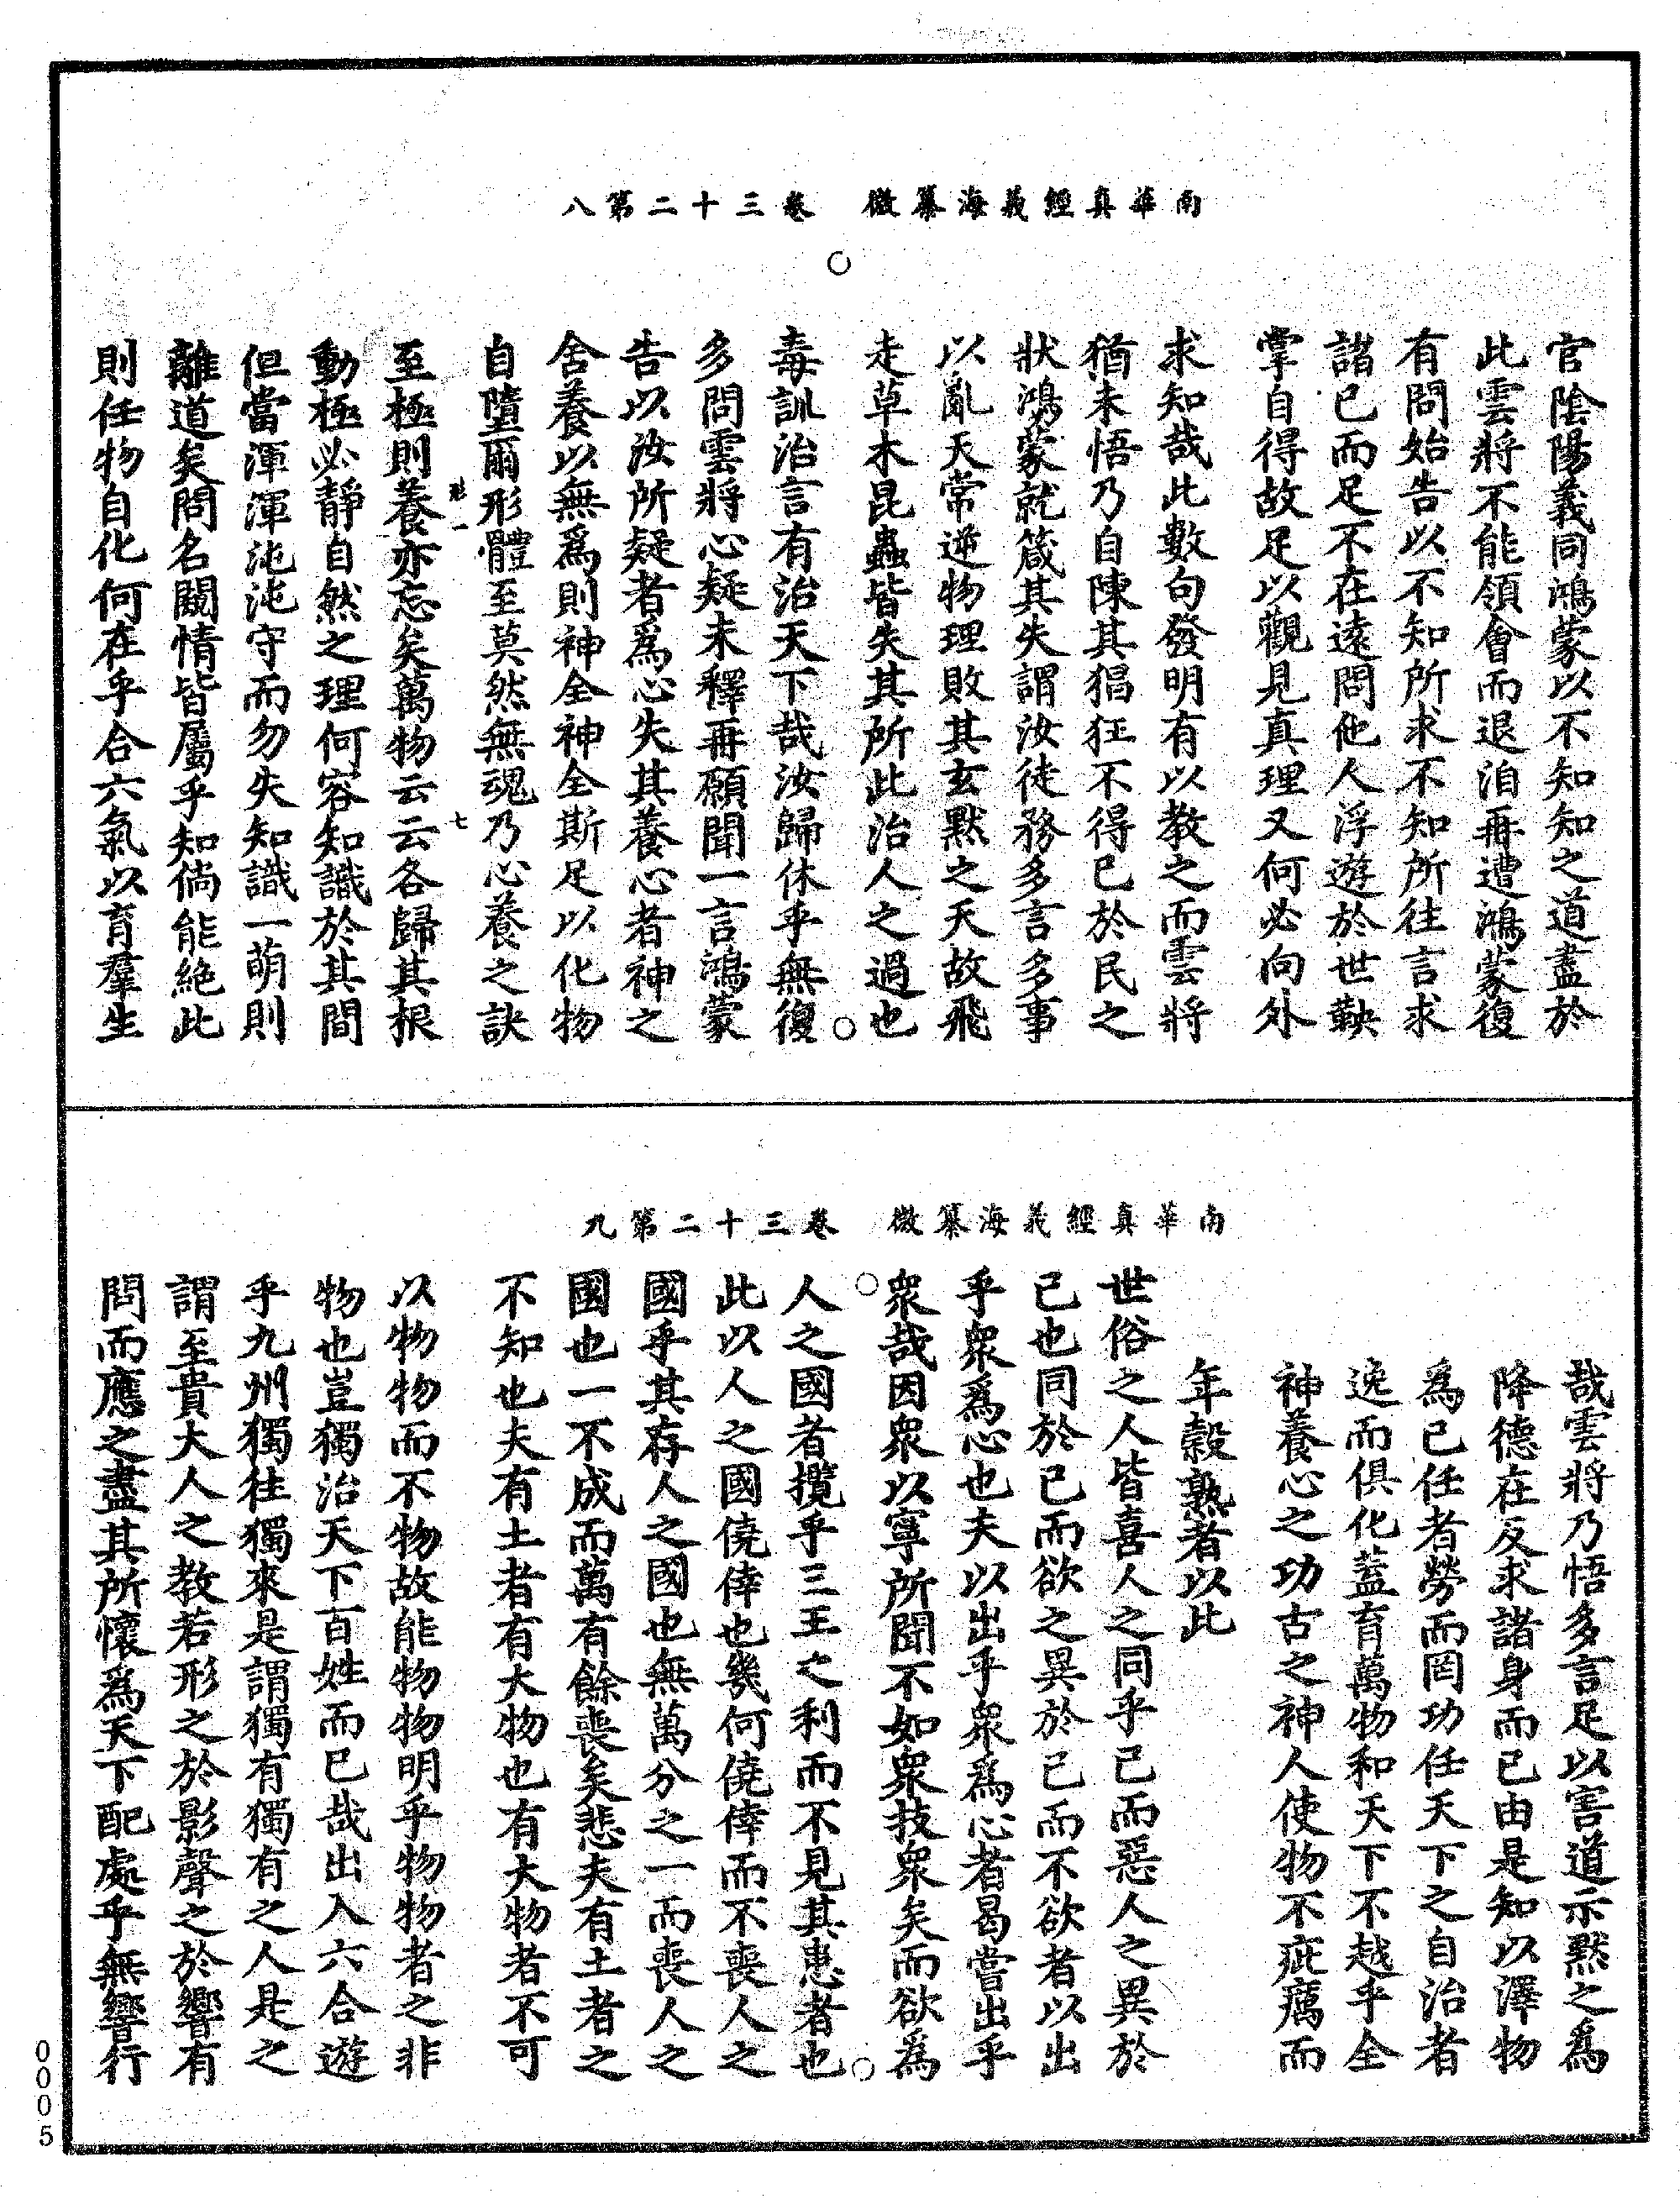 南華真經義海纂微　卷三十二第八
官陰陽義同鴻蒙以不知知之道盡於
此雲將不能領會而退洎再遭鴻蒙復
有問始告以不知所求不知所往言求
諸已而足不在遠問他人浮遊於世鞅
掌自得故足以觀見真理又何必向外
求知哉此數句發明有以教之而雲將
猶未悟乃自陳其猖狂不得已於民之
狀鴻蒙就箴其失謂汝徒務多言多事
以亂天常逆物理敗其玄默之天故飛
走草木昆蟲皆失其所此治人之過也
毒訓治言有治天下哉汝歸休乎無復
多問雲將心疑未釋再願聞一言鴻蒙
告以汝所疑者爲心失其養心者神之
舍養以無爲則神全神全斯足以化物
自墮爾形體至莫然無魂乃心養之訣
一　七
至極則養亦忘矣萬物云云各歸其根
動極必靜自然之理何容知識於其間
但當渾渾沌沌守而勿失知識一萌則
離道矣問名闚情皆屬乎知倘能絶此
則任物自化何在乎合六氣以育羣生
南華真經義海纂微　卷三十二第九
哉雲將乃悟多言足以害道示默之爲
降德在反求諸身而已由是知以澤物
爲已任者勞而罔功任天下之自治者
逸而俱化蓋育萬物和天下不越乎全
神養心之功古之神人使物不疵癘而
年穀熟者以此
世俗之人皆喜人之同乎己而惡人之異於
己也同於己而欲之異於己而不欲者以出
乎衆爲心也夫以出乎衆爲心者曷嘗出乎
衆哉因衆以寧所聞不如衆技衆矣而欲爲
人之國者攬乎三王之利而不見其患者也
此以人之國僥倖也幾何僥倖而不喪人之
國乎其存人之國也無萬分之一而喪人之
國也一不成而萬有餘喪矣悲夫有土者之
不知也夫有土者有大物也有大物者不可
以物物而不物故能物物明乎物物者之非
物也豈獨治天下百姓而已哉出入六合遊
乎九州獨往獨來是謂獨有獨有之人是之
謂至貴大人之教若形之於影聲之於響有
問而應之盡其所懷爲天下配處乎無響行
0005